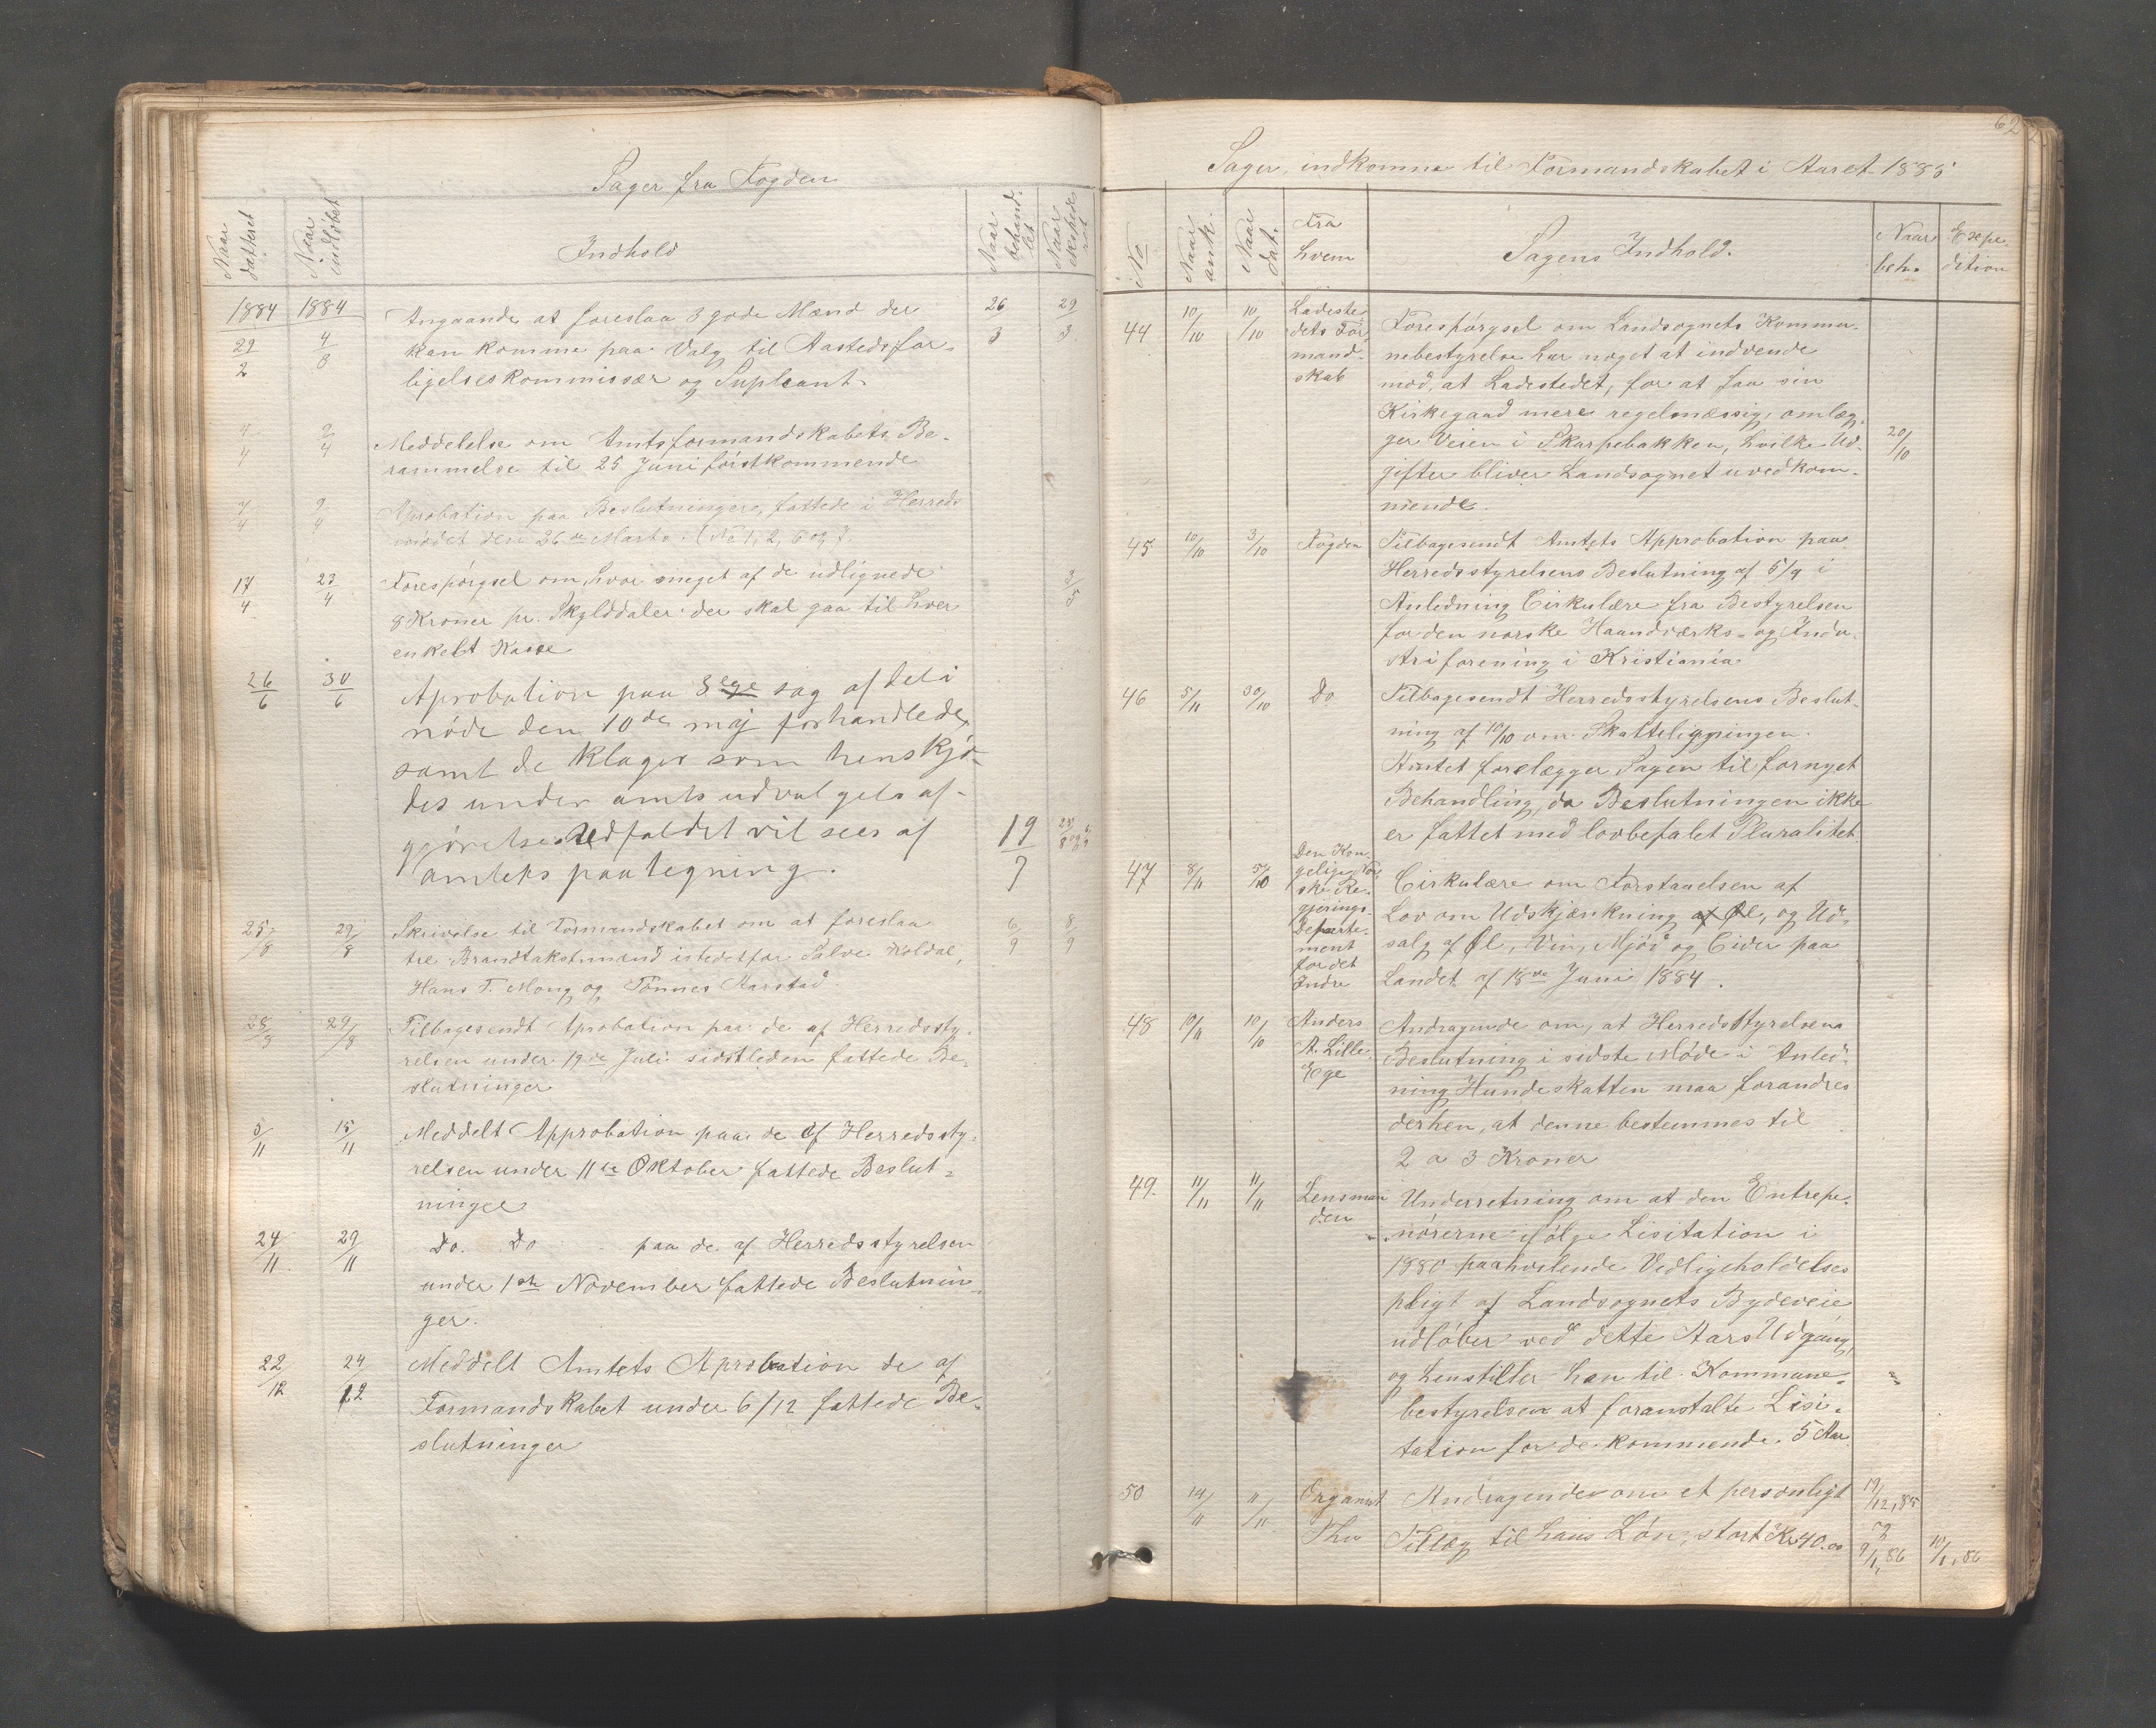 Sager fra Fogden
Naar datteret
Naar indløbet
Indhold
Naar behandlet
Naar
1884 1884
29/2 4/8 Angaaende at foreslaa 3 gode Mænd der 26/3 29/3
kan komme paa Valg til Aastedsfor-
ligelseskommissær og Supleant.
4/4 9/4 Meddelelse om Amtsformandskabets Be-
rammelse til 25 Juni førstkommende
4/4 9/4 Aprobation paa Beslutninger, fattede i Herreds
møddet den 26de Marts: (No 1, 2, 6 og 7.
17/4 23/4 Forespørgsel om, hvor meget af de udlignede 3/5
8 Kroner pr. Skylddaler der skal gaa til hver
enkelt Kasse
26/6 30/6 Aprobation paa 3 sag af det i
møde den 10de maj forhandlede
samt de klager som henskjø-
des under amts udvalgets af-
gjørelse Udfaldet vil sees af 19/7
amtets paategning.
25/8 29/8 Skrivelse til Formandskabet om at foreslaa 6/9 8/9
tre Brandtakstmænd istedetfor Salve Koldal,
Hans T. Mong og Tønnes Aarstad.
28/8 29/8 Tilbagesendt Aprobation paa de af Herredssty-
relsen under 19de Juli sidstleden fattede Be-
slutninger
5/11 15/11 Meddelt Approbation paa de af Herredssty-
relsen under 11te Oktober fattede Beslut-
ninger
24/11 29/11 Do. Do paa de af Herredsstyrelsen
under 1ste November fattede Beslutnin-
ger.
22/12 24/12 Meddelt Amtets Aprobation de af
Formandskabet under 6/12 fattede Be-
slutninger
62
Sager, indkomne til Formandskabet i Aaret 1885
No
Naar ank.
Naar dat.
Fra hvem
Sagens Indhold.
Naar beh.
Expedition
44 10/10 10/10 Ladeste- Forespørgsel om Landsognets Kommu-
dets For- nebestyrelse har noget at indvende
mand- mod, at Ladestedet, for at faa sin
skab
Kirkegaard mere regelmæssig, omlæg-
ger Veien i Skarpebakken, hvilke Ud- 20/10
gifter bliver Landsognet uvedkom-
mende.
45 10/10 3/10 Fogden Tilbagesendt Amtets Approbation paa
Herredsstyrelsens Beslutning af 5/9 i
Anledning Cirkulære fra Bestyrelsen
for den norske Haandværks- og Indu-
striforening i Kristiania
46 5/11 30/10 Do Tilbagesendt Herredsstyrelsens Beslut-
ning af 10/10 om Skatteligningen.
Amtet forelægger Sagen til fornyet
Behandling, da Beslutningen ikke
er fattet med lovbefalet Pluralitet.
47 8/11 5/10 Den Kon-
gelige Nor-
ske Re-
gjerings-
Departe-
ment
for det
Indre
Cirkulære om Forstaaelsen af
Lov om Udskjænkning af Øl, og Ud-
salg af Øl, Vin, Mjød og Cider paa
Landet af 18de Juni 1884.
48 10/11 10/10 Anders Andragende om, at Herredsstyrelsens
A. Lille Beslutning i sidste Møde i Anled-
Ege ning Hundeskatten maa forandres
derhen, at denne bestemmes til
2 a 3 Kroner
49. 11/11 11/11 Lensman Underretning om at den Entrepe-
den nørerne ifølge Lisitation i
1880 paahvilende Vedligeholdelses
pligt af Landsognets Bydeveie
udløber ved dette Aars Udgang,
og henstiller han til Kommune-
bestyrelsen at foranstalte Lisi-
tation for de kommende 5 Aar
50 14/11 11/11 Organist Andragende om et personligt 19/12, 85
Tillæg til hans Løn, stort Kr 40.00 9/1, 86 10/1, 86